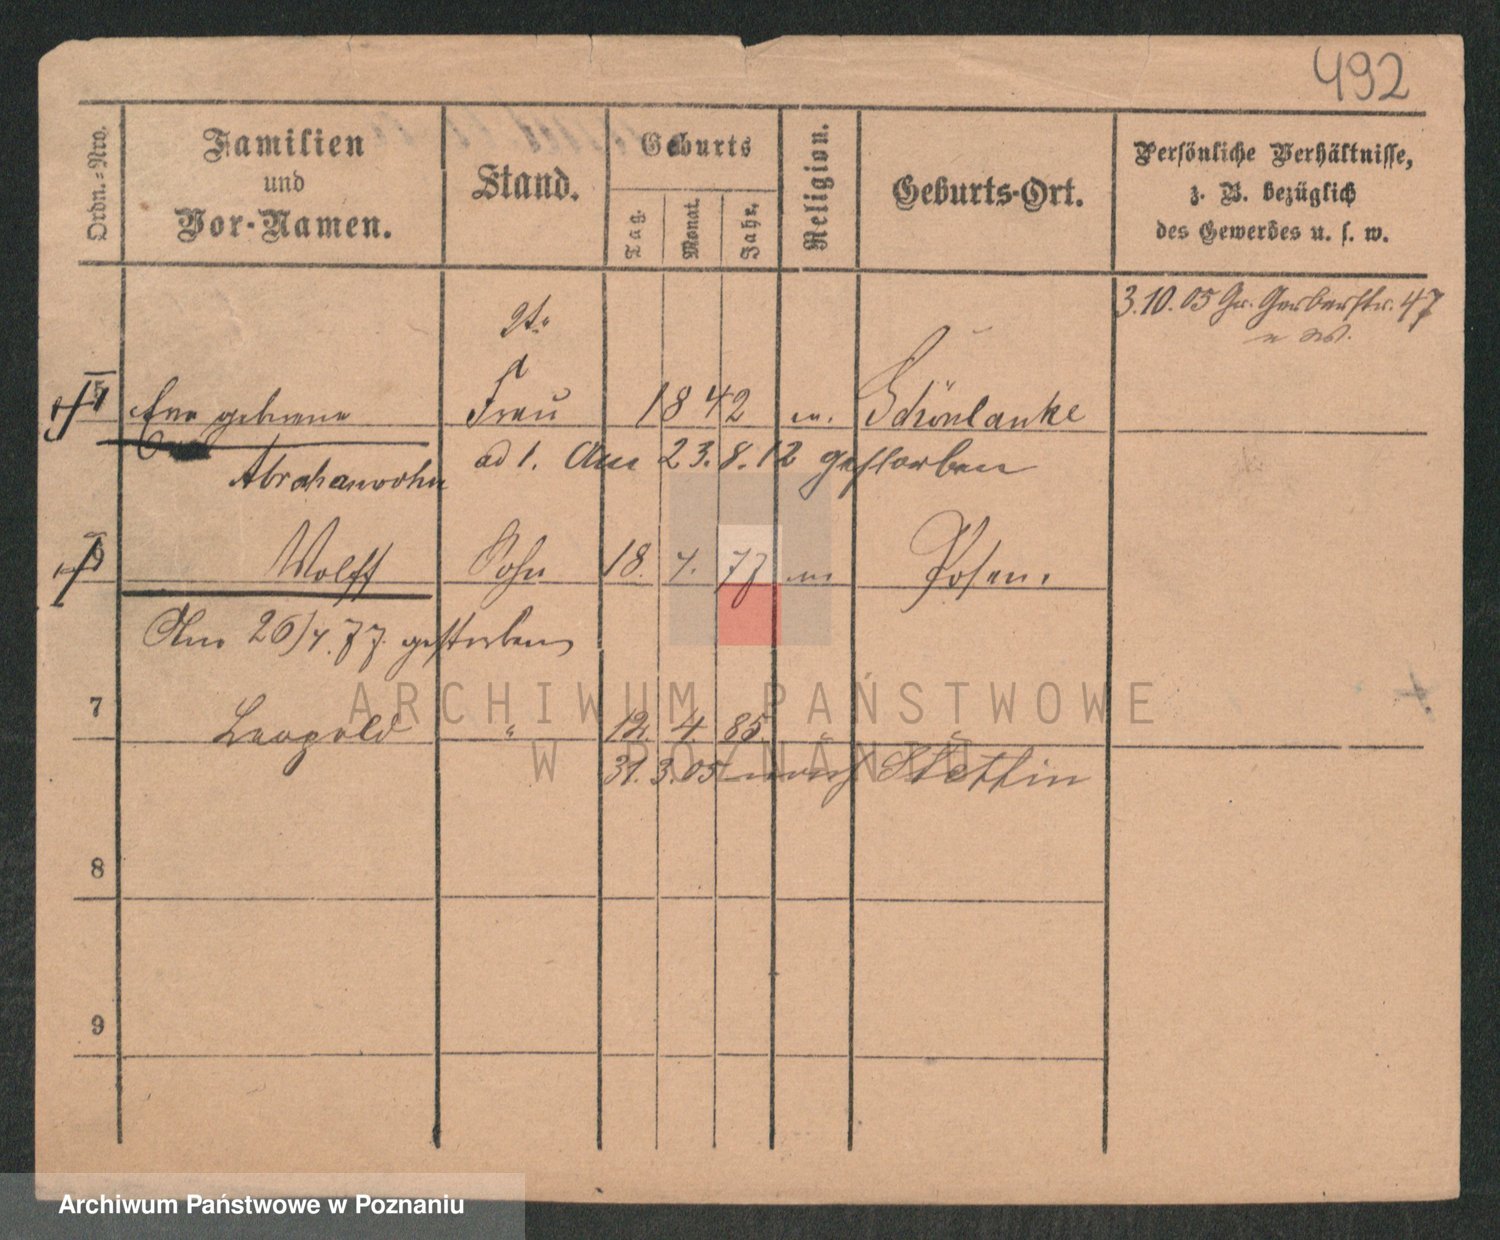 492
Ordn.-Nro.
Familien
und
Vor-Namen.
Stand.
Geburts
Tag.
Monat.
Jahr.
Religion.
Geburts-Ort.
Persönliche Verhältnisse,
z. B. bezüglich
des Gewerbes u. s. w.
3.10.05 Gr. Gerberstr. 47
5 geborene Frau 1842 m. Schönlanke
Abrahamsohn ad 1. Am 23.8.12 gestorben
6 Wolff Sohn 18. 4. 77 m Posen.
Am 26/4.77. gestorben
7 Leopold " 12. 4. 85. " "
31.3.05 nach Stettin
8
9
ARCHIWUM PAŃSTWOWE
W POZNANIU
Archiwum Państwowe w Poznaniu